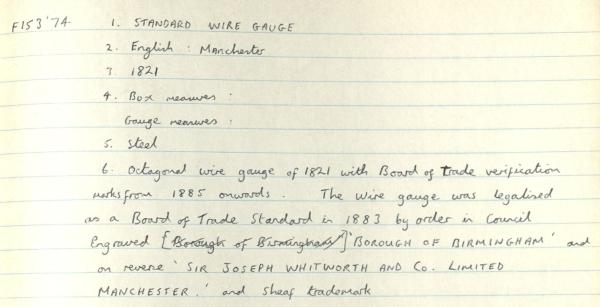 F153'74 1. STANDARD WIRE GAUGE
2. English : Manchester
3. 1821
4. Box measures :
Gauge measures :
5. Steel
6. Octagonal wire gauge of 1821 with Board of Trade verification
marks from 1885 onwards. The wire gauge was legalised
as a Board of Trade Standard in 1883 by order in Council
Engraved [Borough of Birmingham] 'BOROUGH OF BIRMINGHAM' and
on reverse 'SIR JOSEPH WHITWORTH AND Co. LIMITED
MANCHESTER.' and sheaf trademark